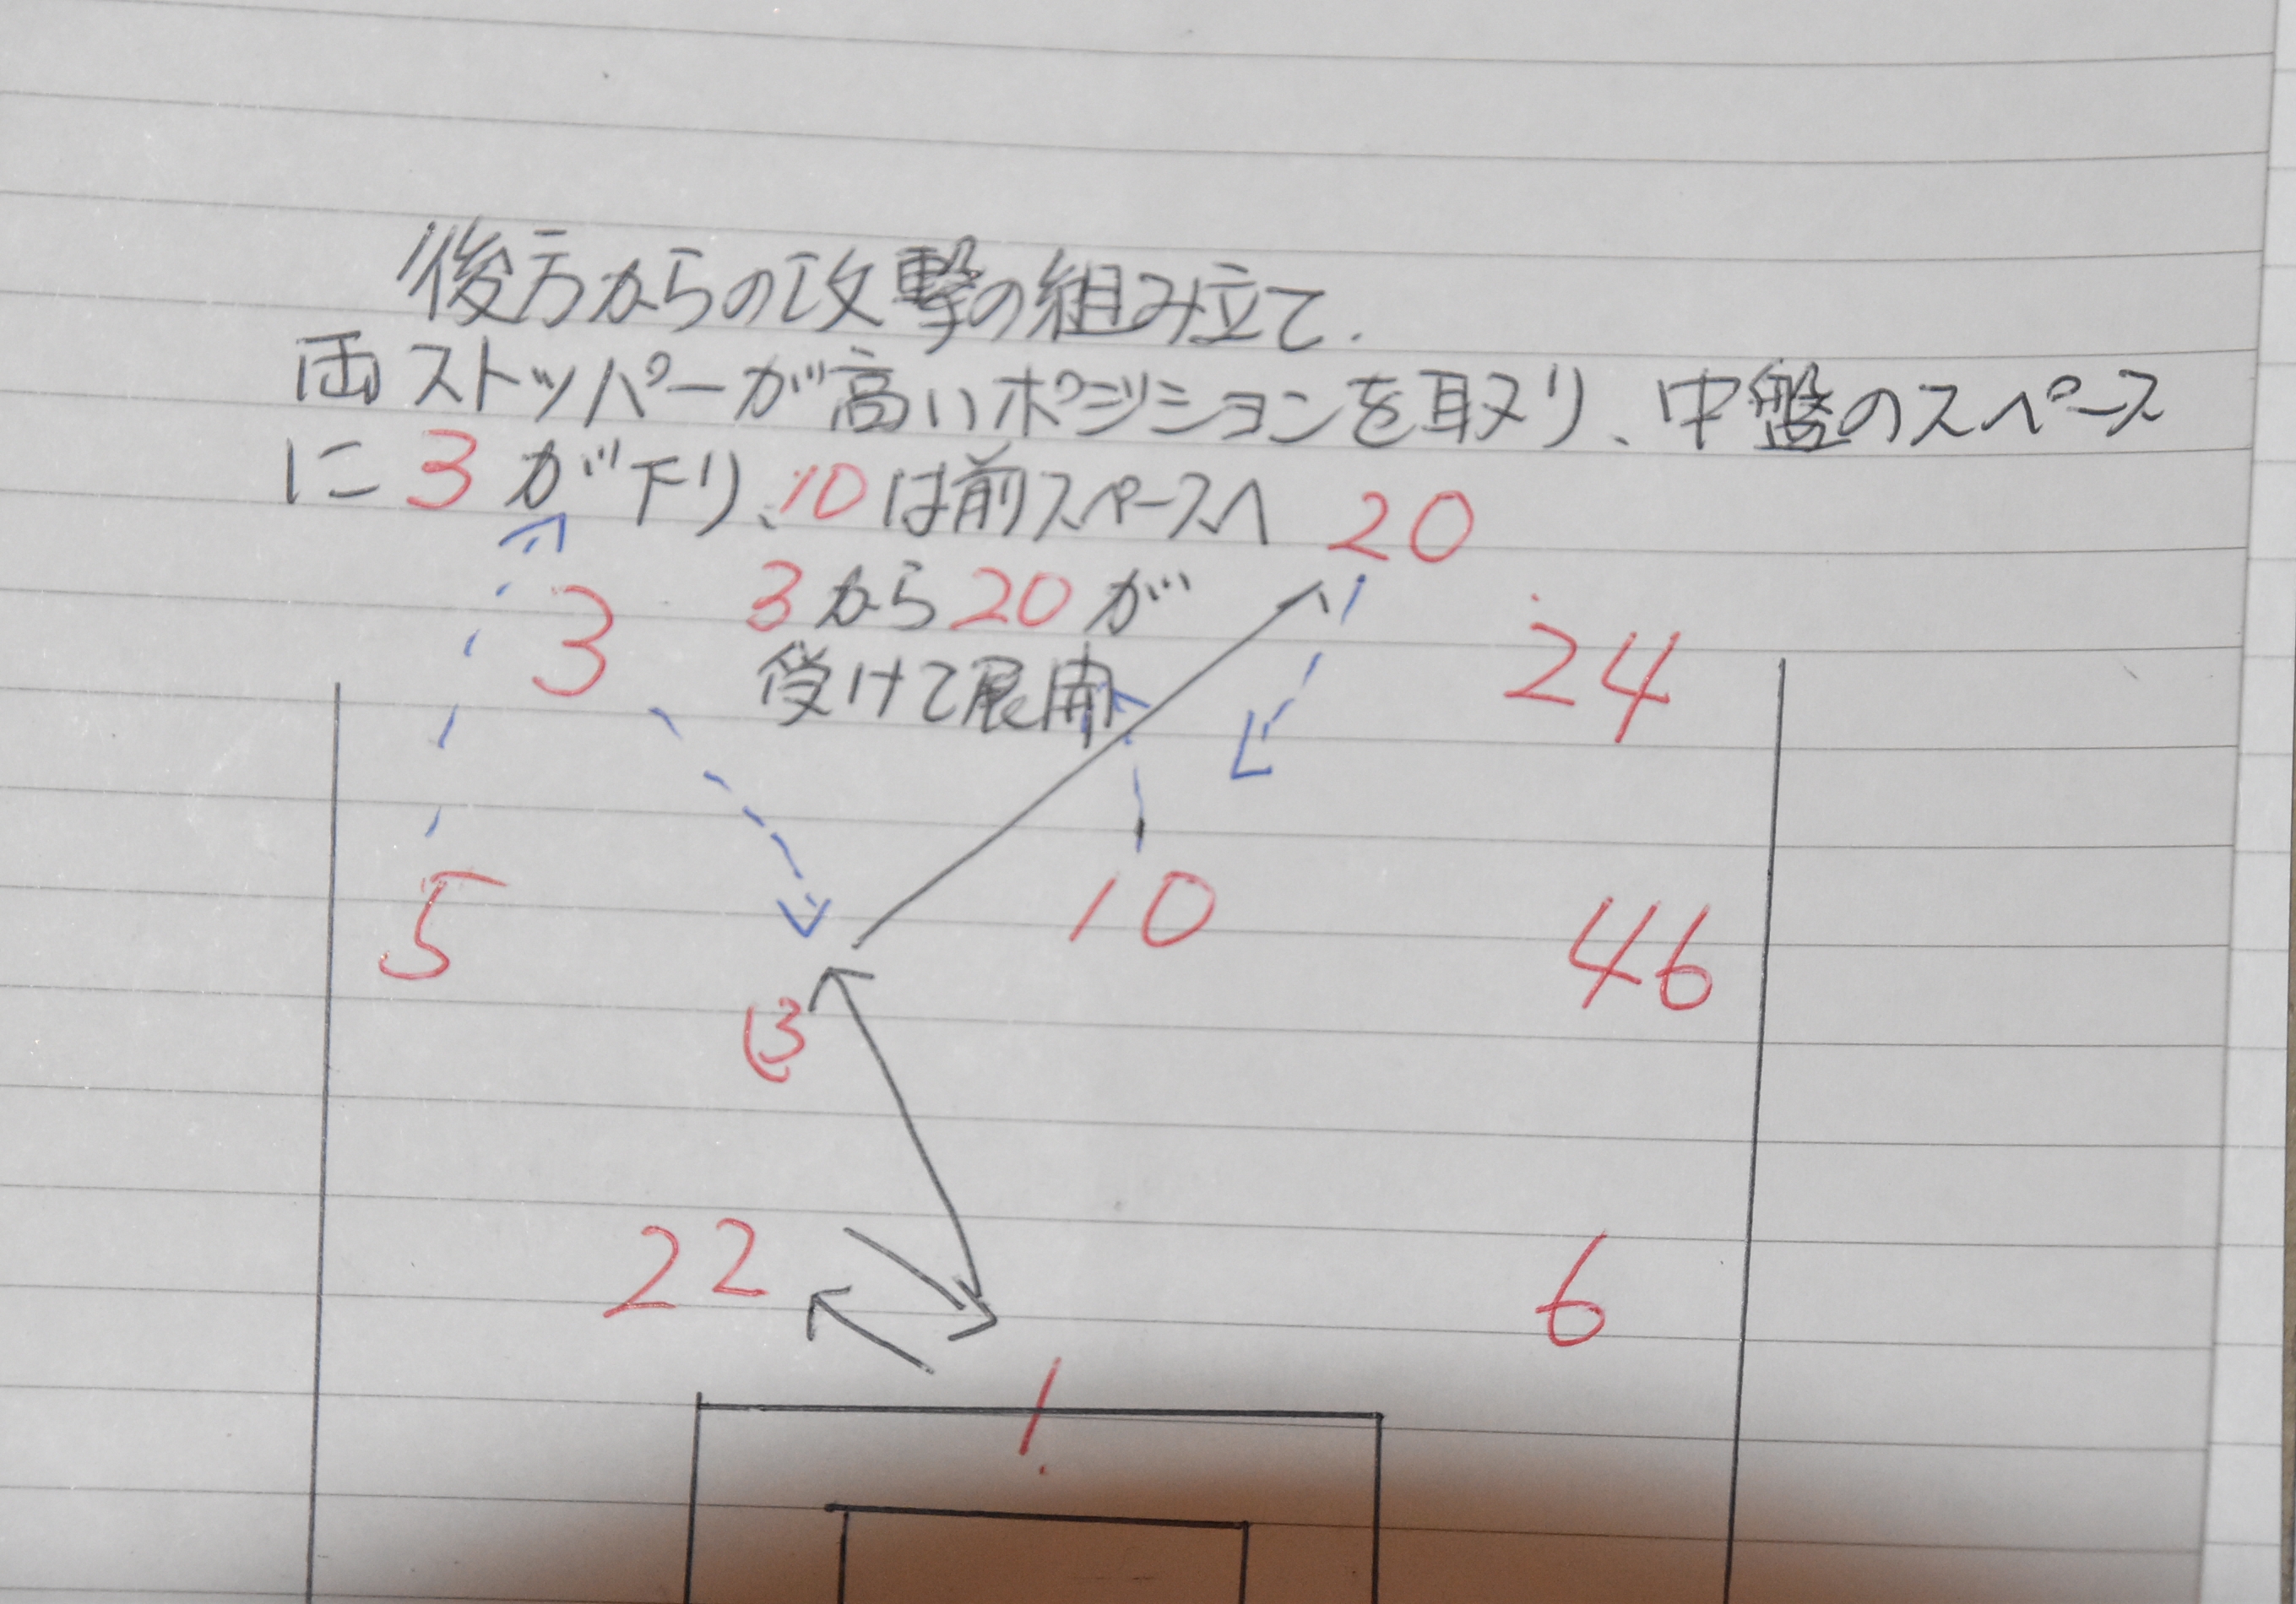 後方からの攻撃の組み立て.
両ストッパーが高いポジションを取り、中盤のスペース
に3が下り、10は前スペースへ
20
3から20が
3
24
受けて展開
5
10
46
(3
22
6
1